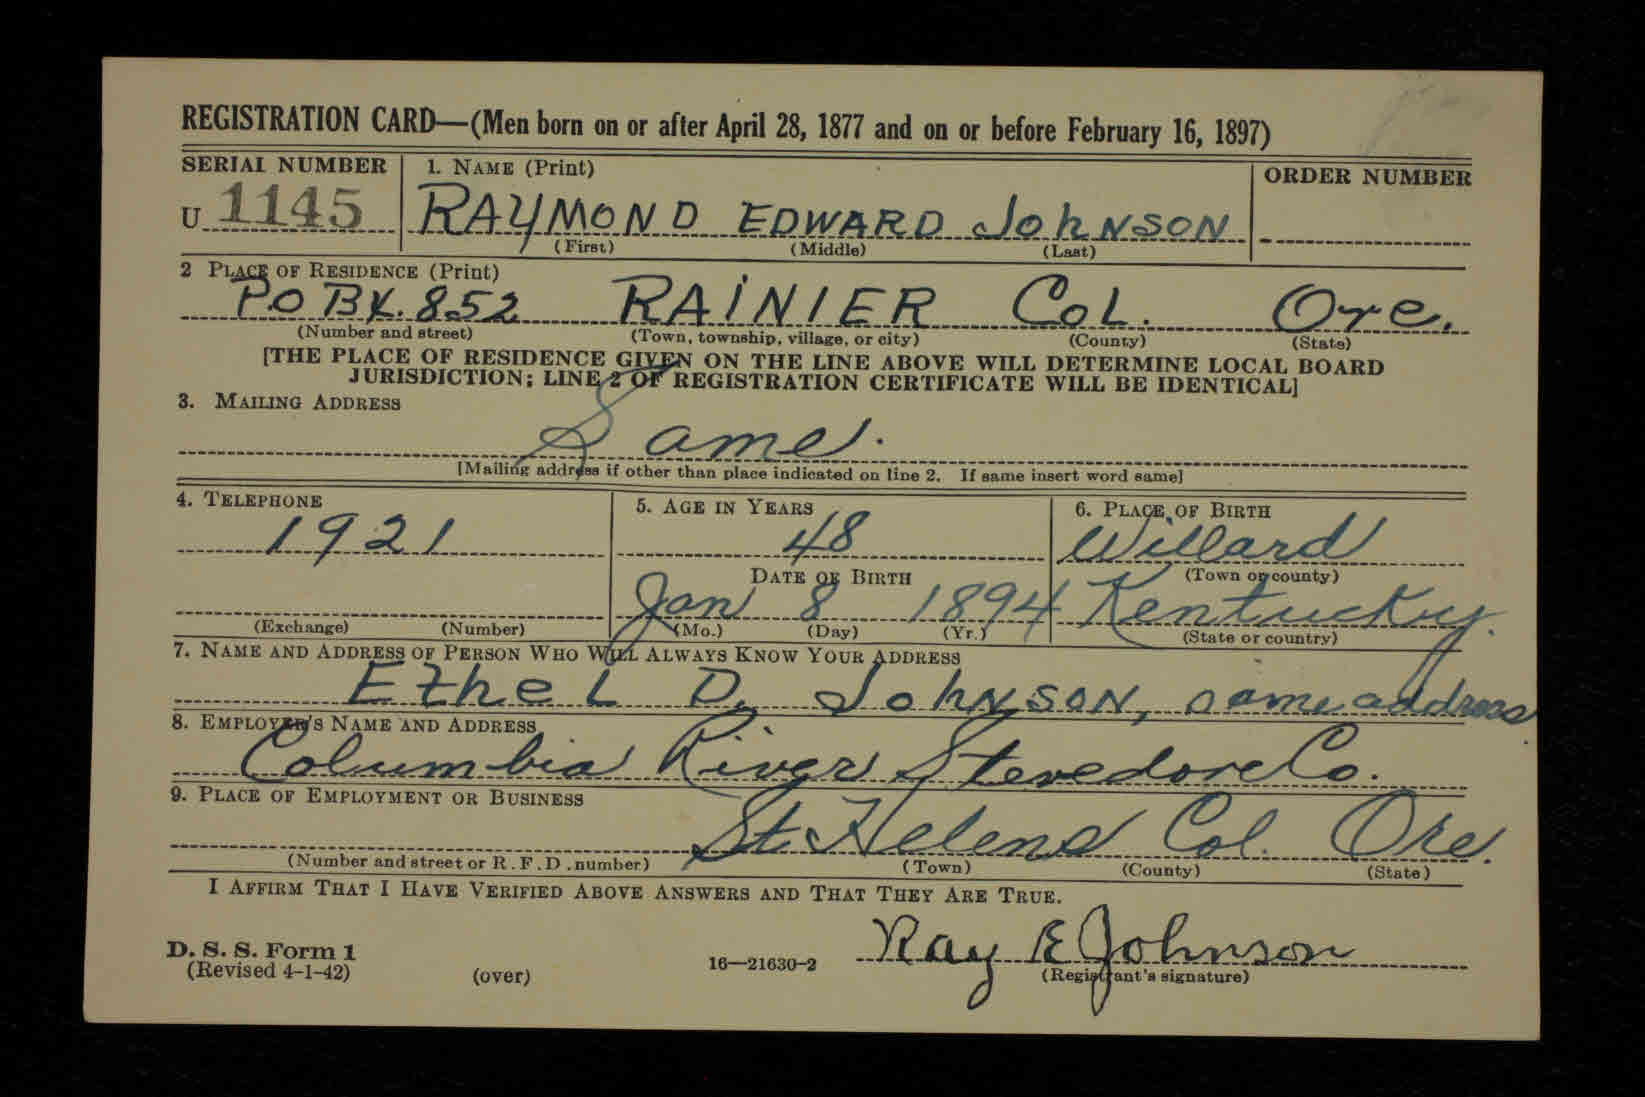 REGISTRATION CARD—(Men born on or after April 28, 1877 and on or before February 16, 1897)
SERIAL NUMBER 1. NAME (Print) ORDER NUMBER
U 1145 RAYMOND EDWARD JohNSON
(First) (Middle) (Last)
2 PLACE OF RESIDENCE (Print)
P.O Bx. 852 RAINIER COL. Ore.
(Number and street) (Town, township, village, or city) (County) (State)
[THE PLACE OF RESIDENCE GIVEN ON THE LINE ABOVE WILL DETERMINE LOCAL BOARD
JURISDICTION; LINE 2 OF REGISTRATION CERTIFICATE WILL BE IDENTICAL]
3. MAILING ADDRESS
Same.
[Mailing address if other than place indicated on line 2. If same insert word same]
4. TELEPHONE 5. AGE IN YEARS 6. PLACE OF BIRTH
1921 48 Willard
DATE OF BIRTH (Town or county)
Jan 8 1894 Kentucky.
(Exchange) (Number) (Mo.) (Day) (Yr.) (State or country)
7. NAME AND ADDRESS OF PERSON WHO WILL ALWAYS KNOW YOUR ADDRESS
EthEL D. JohNSON, same address.
8. EMPLOYER'S NAME AND ADDRESS
Columbia River Stevedore Co.
9. PLACE OF EMPLOYMENT OR BUSINESS
St. Helens Col. Ore.
(Number and street or R.F.D. number) (Town) (County) (State)
I AFFIRM THAT I HAVE VERIFIED ABOVE ANSWERS AND THAT THEY ARE TRUE.
Ray E Johnson
D. S. S. Form 1
(Revised 4-1-42) (over) 16—21630-2 (Registrant's signature)